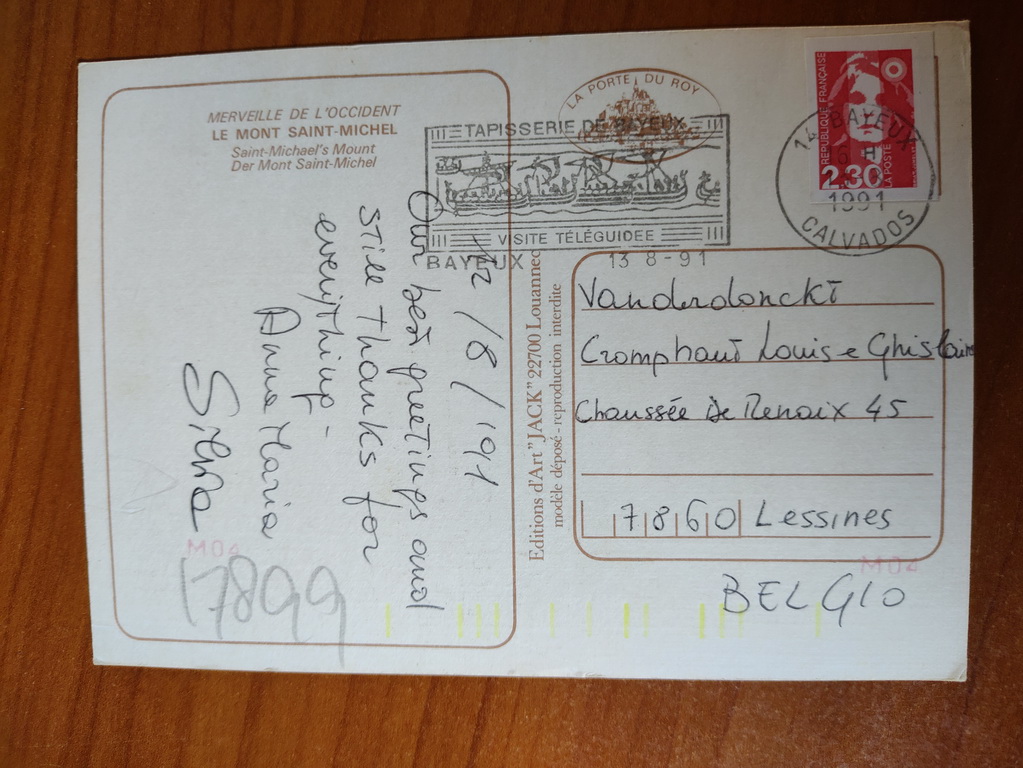 MERVEILLE DE L'OCCIDENT
LE MONT SAINT-MICHEL
Saint-Michael's Mount
Der Mont Saint-Michel
LA PORTE DU ROY
TAPISSERIE DE BAYEUX
VISITE TÉLÉGUIDEE
BAYEUX 13 8-91
REPUBLIQUE FRANÇAISE
2.30
LA POSTE
14 BAYEUX
1991
CALVADOS
12/8/191
Our best greetings and
still thanks for
everything -
Anna Maria
Silvia
17899
M04
Editions d'Art "JACK" 22700 Louannec
modèle déposé - reproduction interdite
Vanderdonckt
Cromphaut Louise Ghislaine
Chaussée de Renaix 45
7860 Lessines
BELGIO
M04